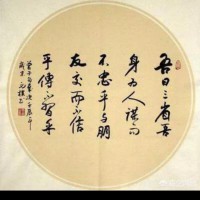 吾日三省吾
身为人谋而
不忠乎与朋
友交而不信
乎传不習乎